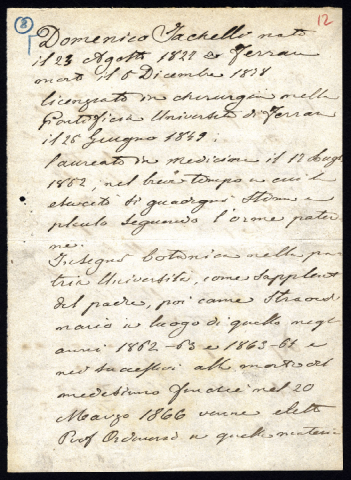 8
12
Domenico Jachelli nato
il 23 Agosto 1822 a Ferrara
morto il 6 Dicembre 1878
licenziato in chirurgia nella
Pontificia Università di Ferrara
il 26 Giugno 1849;
laureato in medicina il 12 Lugl
1862, nel breve tempo a cui
esercitò si guadagnò stima e
plauso seguendo l'orme pater
ne.
Insegnò botanica nella pa
tria Università, come Supplent
del padre, poi come Straord
nario in luogo di quello negli
anni 1862-63 e 1863-64 e
nei successivi. alla morte del
medesimo nel 20
Marzo 1866 venne eletto
Prof Ordinario a quella materia